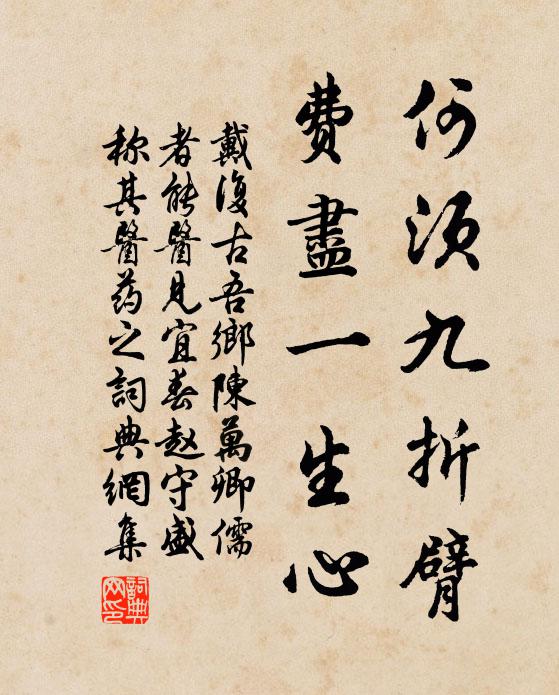 何须九折臂
費盡一生心
戴復古吾鄉陳萬卿儒
者能醫見宜春赵守盛
称其醫药之詞典網集
詞典網印